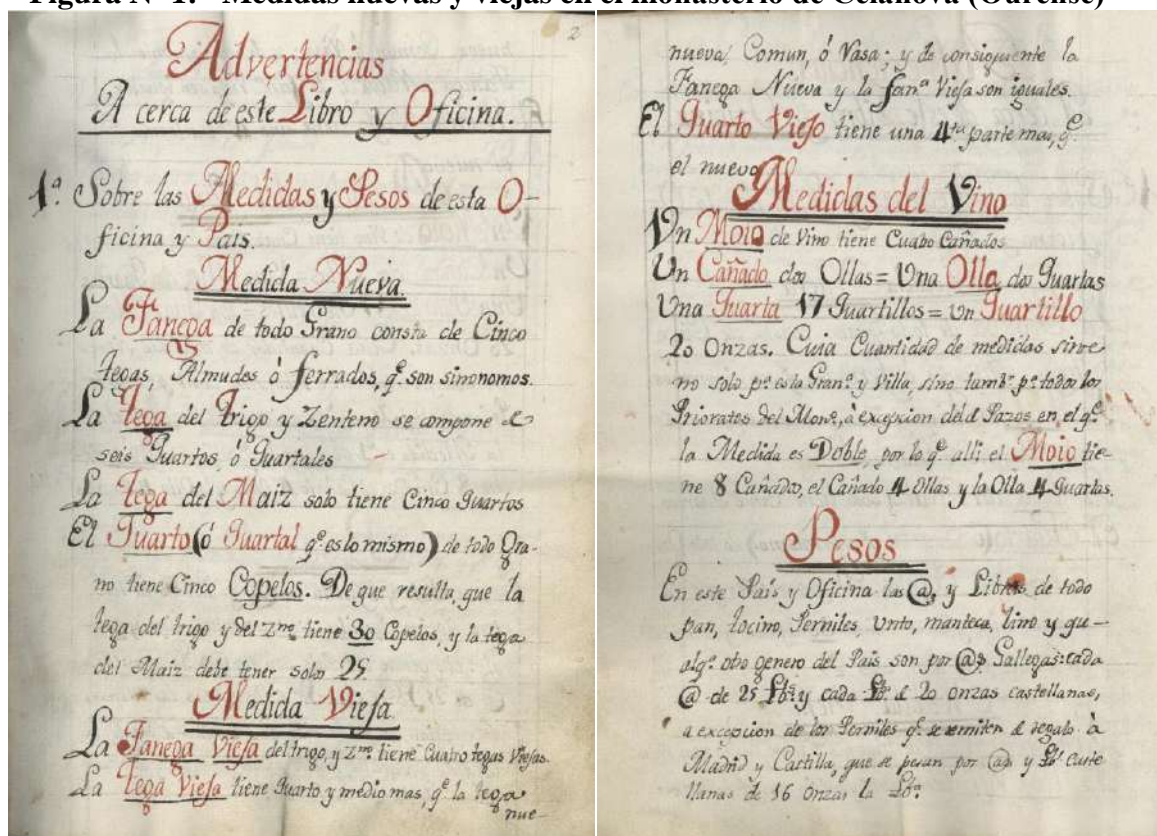 Figura Nº 1.- Medidas nuevas y viejas en el monasterio de Celanova (Ourense)
2
Advertencias
A cerca de este Libro y Oficina.
1ª. Sobre las Medidas y Pesos de esta O-
ficina y País.
Medida Nueva.
La Fanega de todo Grano consta de Cinco
tegas, Almudes ò ferrados, qᵉ. son sinonomos.
La tega del trigo y Zenteno se compone de
seis Quartos, ó Quartales
La tega del Maiz solo tiene Cinco Quartos
El Quarto (ó Quartal qᵉ es lo mismo) de todo Gra-
no tiene Cinco Copelos. De que resulta, que la
tega del trigo y del Zⁿᵒ tiene 30 Copelos, y la tega
del Maiz debe tener solos 25.
Medida Vieja
La Fanega Vieja del trigo, y Zⁿᵒ tiene Cuatro tegas Viejas.
La tega Vieja tiene Quarto y medio mas, qᵉ la tega
nue-
nueva, Comun, ó Vasa; y de consiguiente la
Fanega Nueva y la fanᵃ Vieja son iguales.
El Quarto Viejo tiene una 4ᵗᵃ parte mas, qᵉ
el nuevo
Medidas del Vino
Un Moio de Vino tiene Cuatro Cañados
Un Cañado dos Ollas = Una Olla dos Quartas
Una Quarta 17 Quartillos = Un Quartillo
20 Onzas. Cuia Cuantidad de medidas sirve
no solo pᵃ esta Granᵃ y Villa, sino tambⁿ pᵃ todos los
Prioratos del Monº, à excepcion del de Pazos en el qᵉ
la Medida es Doble, por lo qᵉ alli el Moio tie-
ne 8 Cañados, el Cañado 4 Ollas y la Olla 4 Quartas.
Pesos
En este País y Oficina las @, y Libras de todo
pan, tocino, Perniles, Unto, manteca, lino y qu-
alqᵃ otro genero del País son por @s Gallegas: cada
@ de 25 lbˢ y cada lbᵃ de 20 onzas castellanas,
a excepcion de los Perniles qᵉ se remiten de regalo à
Madrid y Castilla, que se pesan por @s y lbˢ caste-
llanas de 16 onzas la Lbᵃ